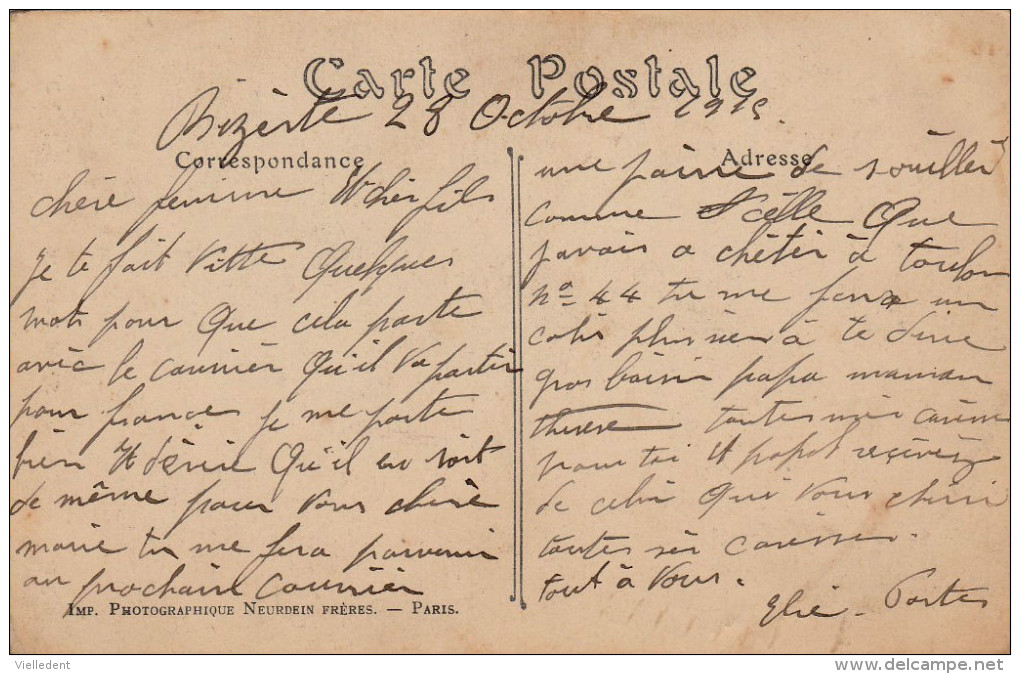 Carte Postale
Bizèrte 28 Octobre 1915.
Correspondance
chère femme Et cher fils
Je te fait vitte quelques
mots pour que cela parte
avèc le courrièr qu'il va partir
pour france je me porte
bièn Et désire qu'il en soit
de même pour vous chère
marie tu me fera parvenir
au prochain courrièr
Imp. Photographique Neurdein frères. — Paris.
Adresse
une paire de souillèr
comme celle que
javais a chètér à toulon
no 44 tu me fera un
colis plus rien à te dire
gros baisér papa maman
therese toutes mes carèsse
pour toi Et recevez
de celui qui vous cheri
toutes sès carèsses.
tout à vous.
Elie Portes
Vielledent
http://www.delcampe.net